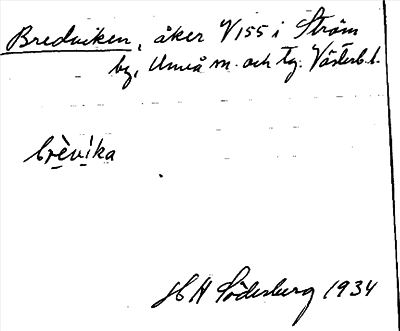 Bredviken, åker V155 i Ström
by, Umeå sn. och tg. Västerb. l.
brèvika
H A Söderberg 1934